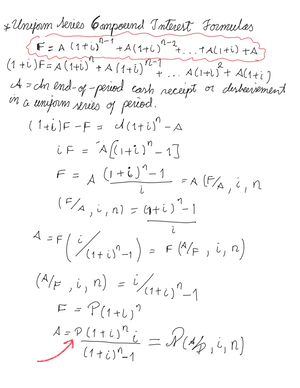 * Uniform Series Compound Interest Formulas
F = A(1+i)^{n-1} + A(1+i)^{n-2} + ... + A(1+i) + A
(1+i)F = A(1+i)^n + A(1+i)^{n-1} + ... A(1+i)^2 + A(1+i)
A = An end-of-period cash receipt or disbursement
in a uniform series of period.
(1+i)F - F = A(1+i)^n - A
iF = A[(1+i)^n - 1]
F = A ((1+i)^n - 1)/i = A(F/A, i, n)
(F/A, i, n) = ((1+i)^n - 1)/i
A = F(i/(1+i)^n - 1) = F(A/F, i, n)
(A/F, i, n) = i/(1+i)^n - 1
F = P(1+i)^n
A = P(1+i)^n i/((1+i)^n - 1) = P(A/P, i, n)